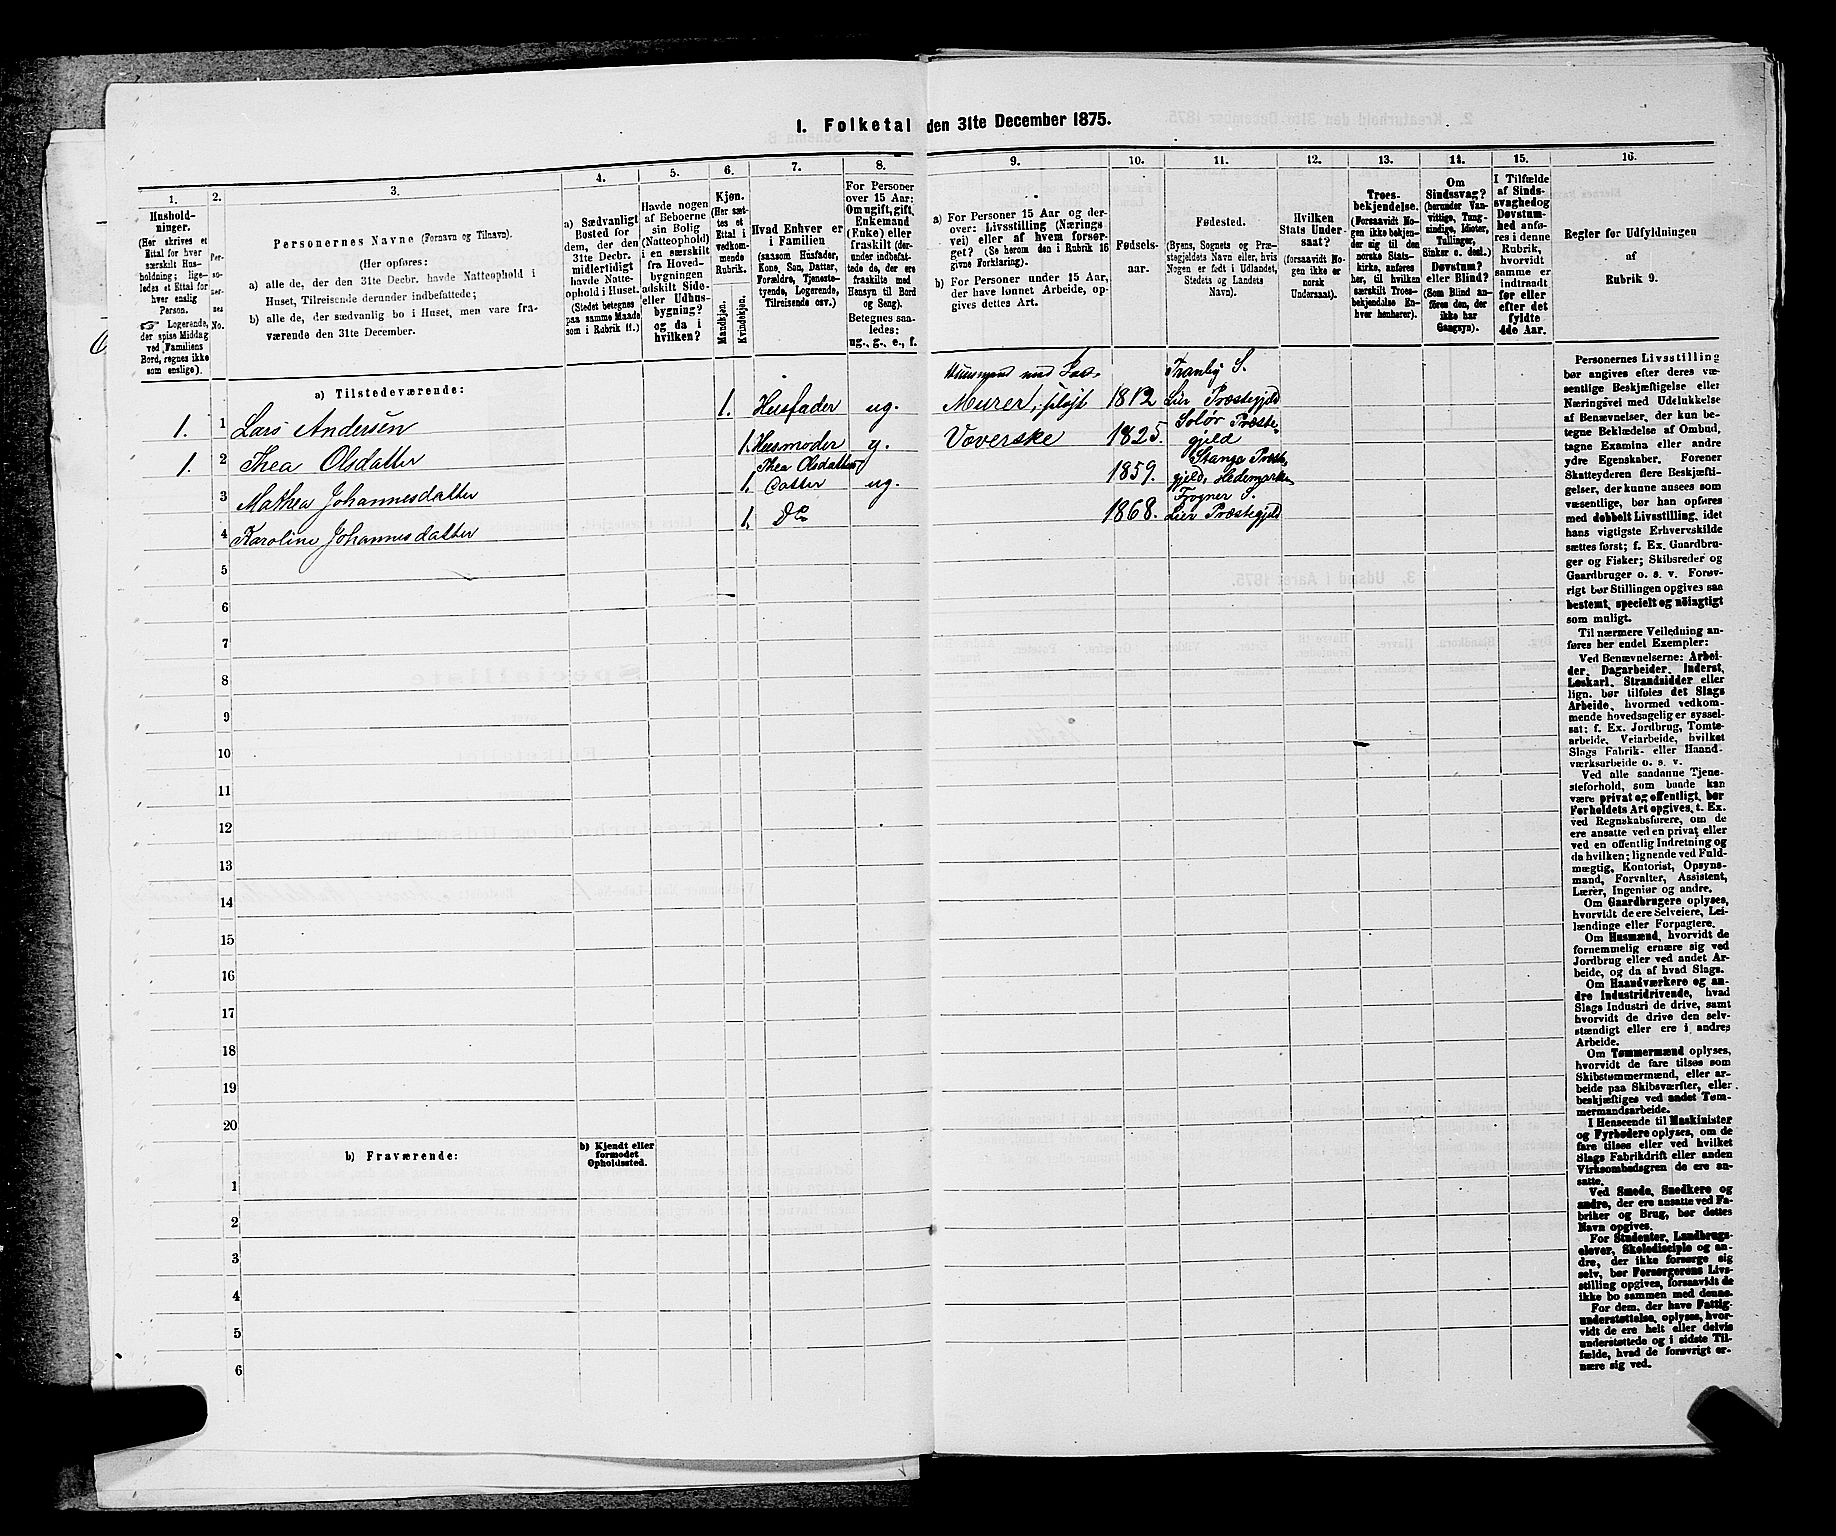 1. Folketal den 31te December 1875.
1.
Hushold-
ninger.
(Her skrives et
Ettal for hver
særskilt Hus-
holdning; lige-
ledes et Ettal for
hver enslig
Person.
Logerende,
der spise Middag
ved Familiens
Bord, regnes ikke
som enslige).
2.
Per-
so-
ner-
nes
No.
3.
Personernes Navne (Fornavn og Tilnavn).
(Her opføres:
a) alle de, der den 31te Decbr. havde Natteophold i
Huset, Tilreisende derunder indbefattede;
b) alle de, der sædvanlig bo i Huset, men vare fra-
værende den 31te December.
4.
a) Sædvanligt
Bosted for
dem, der den
31te Decbr.
midlertidigt
havde Natte-
ophold i Huset.
(Stedet betegnes
paa samme Maade
som i Rubrik 11.)
5.
Havde nogen
af Beboerne
sin Bolig
(Natteophold)
i en særskilt
fra Hoved-
bygningen
adskilt Side-
eller Udhus-
bygning?
og da i
hvilken?
6.
Kjøn.
(Her sæt-
tes et
Ettal i
vedkom-
mende
Rubrik.
Mandkjøn.
Kvindekjøn.
7.
Hvad Enhver er
i Familien
(saasom Husfader,
Kone, Søn, Datter,
Forældre, Tjeneste-
tyende, Logerende,
Tilreisende osv.)
8.
For Personer
over 15 Aar:
Om ugift, gift,
Enkemand
(Enke) eller
fraskilt (der-
under indbefat-
tede de, der ere
fraskilte med
Hensyn til Bord
og Seng).
Betegnes saa-
ledes:
ug., g., e., f.
9.
a) For Personer 15 Aar og der-
over: Livsstilling (Nærings-
vei) eller af hvem forsør-
get? (Se herom den i Rubrik 16
givne Forklaring).
b) For Personer under 15 Aar,
der have lønnet Arbeide, op-
gives dettes Art.
10.
Fødsels-
aar.
11.
Fødested.
(Byens, Sognets og Præ-
stegjeldets Navn eller, hvis
Nogen er født i Udlandet,
Stedets og Landets
Navn).
12.
Hvilken
Stats Under-
saat?
(forsaavidt No-
gen ikke er
norsk
Undersaat).
13.
Troes-
bekjendelse.
(Forsaavidt No-
gen ikke bekjen-
der sig til den
norske Stats-
kirke, anføres
her, til hvilken
særskilt Troes-
bekjendelse En-
hver henhører).
14.
Om
Sindssvag?
(herunder Van-
vittige, Tung-
sindige, Idioter,
Tullinger,
Sinker o. desl.)
Døvstum?
eller Blind?
(Som Blind an-
føres den, der
ikke har
Gangsyn).
15.
I Tilfælde
af Sinds-
svaghed og
Døvstum-
hed anfø-
res i denne
Rubrik,
hvorvidt
samme er
indtraadt
før eller
efter det
fyldte
4de Aar.
16.
Regler for Udfyldningen
af
Rubrik 9.
a) Tilstedeværende:
1. 1 Lars Andersen 1. Husfader ug. Murer, 1812 Tranby S. Lier Præstegjeld
1. 2 Thea Olsdatter 1. Husmoder g. Væverske 1825. Solør Præste-gjeld
3 Mathea Johannesdatter 1. Thea Olsdatters Datter ug. 1859. Stange Præste-gjeld, Hedemarken
4 Karoline Johannesdatter 1. Do 1868. Frogner S. Lier Præstegjeld
5
6
7
8
9
10
11
12
13
14
15
16
17
18
19
20
b) Fraværende:
b) Kjendt eller
formodet
Opholdssted.
1
2
3
4
5
6
Personernes Livsstilling
bør angives efter deres væ-
sentlige Beskjæftigelse eller
Næringsvei med Udelukkelse
af Benævnelser, der kun be-
tegne Beklædelse af Ombud,
tagne Examina eller andre
ydre Egenskaber. Forener
Skatteyderen flere Beskjæfti-
gelser, der kunne ansees som
væsentlige, bør han opføres
med dobbelt Livsstilling, idet
hans vigtigste Erhvervskilde
sættes først; f. Ex. Gaardbru-
ger og Fisker; Skibsreder og
Gaardbruger o. s. v. Forøv-
rigt bør Stillingen opgives saa
bestemt, specielt og nöiagtigt
som muligt.
Til nærmere Veiledning an-
føres her endel Exempler:
Ved Benævnelserne: Arbei-
der, Dagarbeider, Inderst,
Løskarl, Strandsidder eller
lign. bør tilføies det Slags
Arbeide, hvormed vedkom-
mende hovedsagelig er syssel-
sat; f. Ex. Jordbrug, Tomte-
arbeide, Veiarbeide, hvilket
Slags Fabrik- eller Haand-
værksarbeide o. s. v.
Ved alle saadanne Tjene-
steforhold, som baade kan
være privat og offentligt, bør
Forholdets Art opgives, t. Ex.
ved Regnskabsførere, om de
ere ansatte ved en privat eller
ved en offentlig Indretning og
da hvilken; lignende ved Fuld-
mægtig, Kontorist, Opsyns-
mand, Forvalter, Assistent,
Lærer, Ingeniør og andre.
Om Gaardbrugere oplyses,
hvorvidt de ere Selveiere, Lei-
lændinge eller Forpagtere.
Om Husmænd, hvorvidt de
fornemmelig ernære sig ved
Jordbrug eller ved andet Ar-
beide, og da af hvad Slags.
Om Haandværkere og an-
dre Industridrivende, hvad
Slags Industri de drive, samt
hvorvidt de drive den selv-
stændigt eller ere i andres
Arbeide.
Om Tømmermænd oplyses,
hvorvidt de fare tilsøs som
Skibstømmermænd, eller ar-
beide paa Skibsværfter, eller
beskjæftiges ved andet Tøm-
mermandsarbeide.
I Henseende til Maskinister
og Fyrbødere oplyses, om de
fare tilsøs eller ved hvilket
Slags Fabrikdrift eller anden
Virksomhedsgren de ere an-
satte.
Ved Smede, Snedkere og
andre, der ere ansatte ved Fa-
briker og Brug, bør dettes
Navn opgives.
For Studenter, Landbrugs-
elever, Skoledisciple og an-
dre, der ikke forsørge sig
selv, bør Forsørgerens Livs-
stilling opgives, forsaavidt de
ikke bo sammen med denne.
For dem, der have Fattig-
understøttelse, oplyses, hvor-
vidt de ere helt eller delvis
understøttede og i sidste Til-
fælde, hvad de forøvrigt er-
nære sig ved.